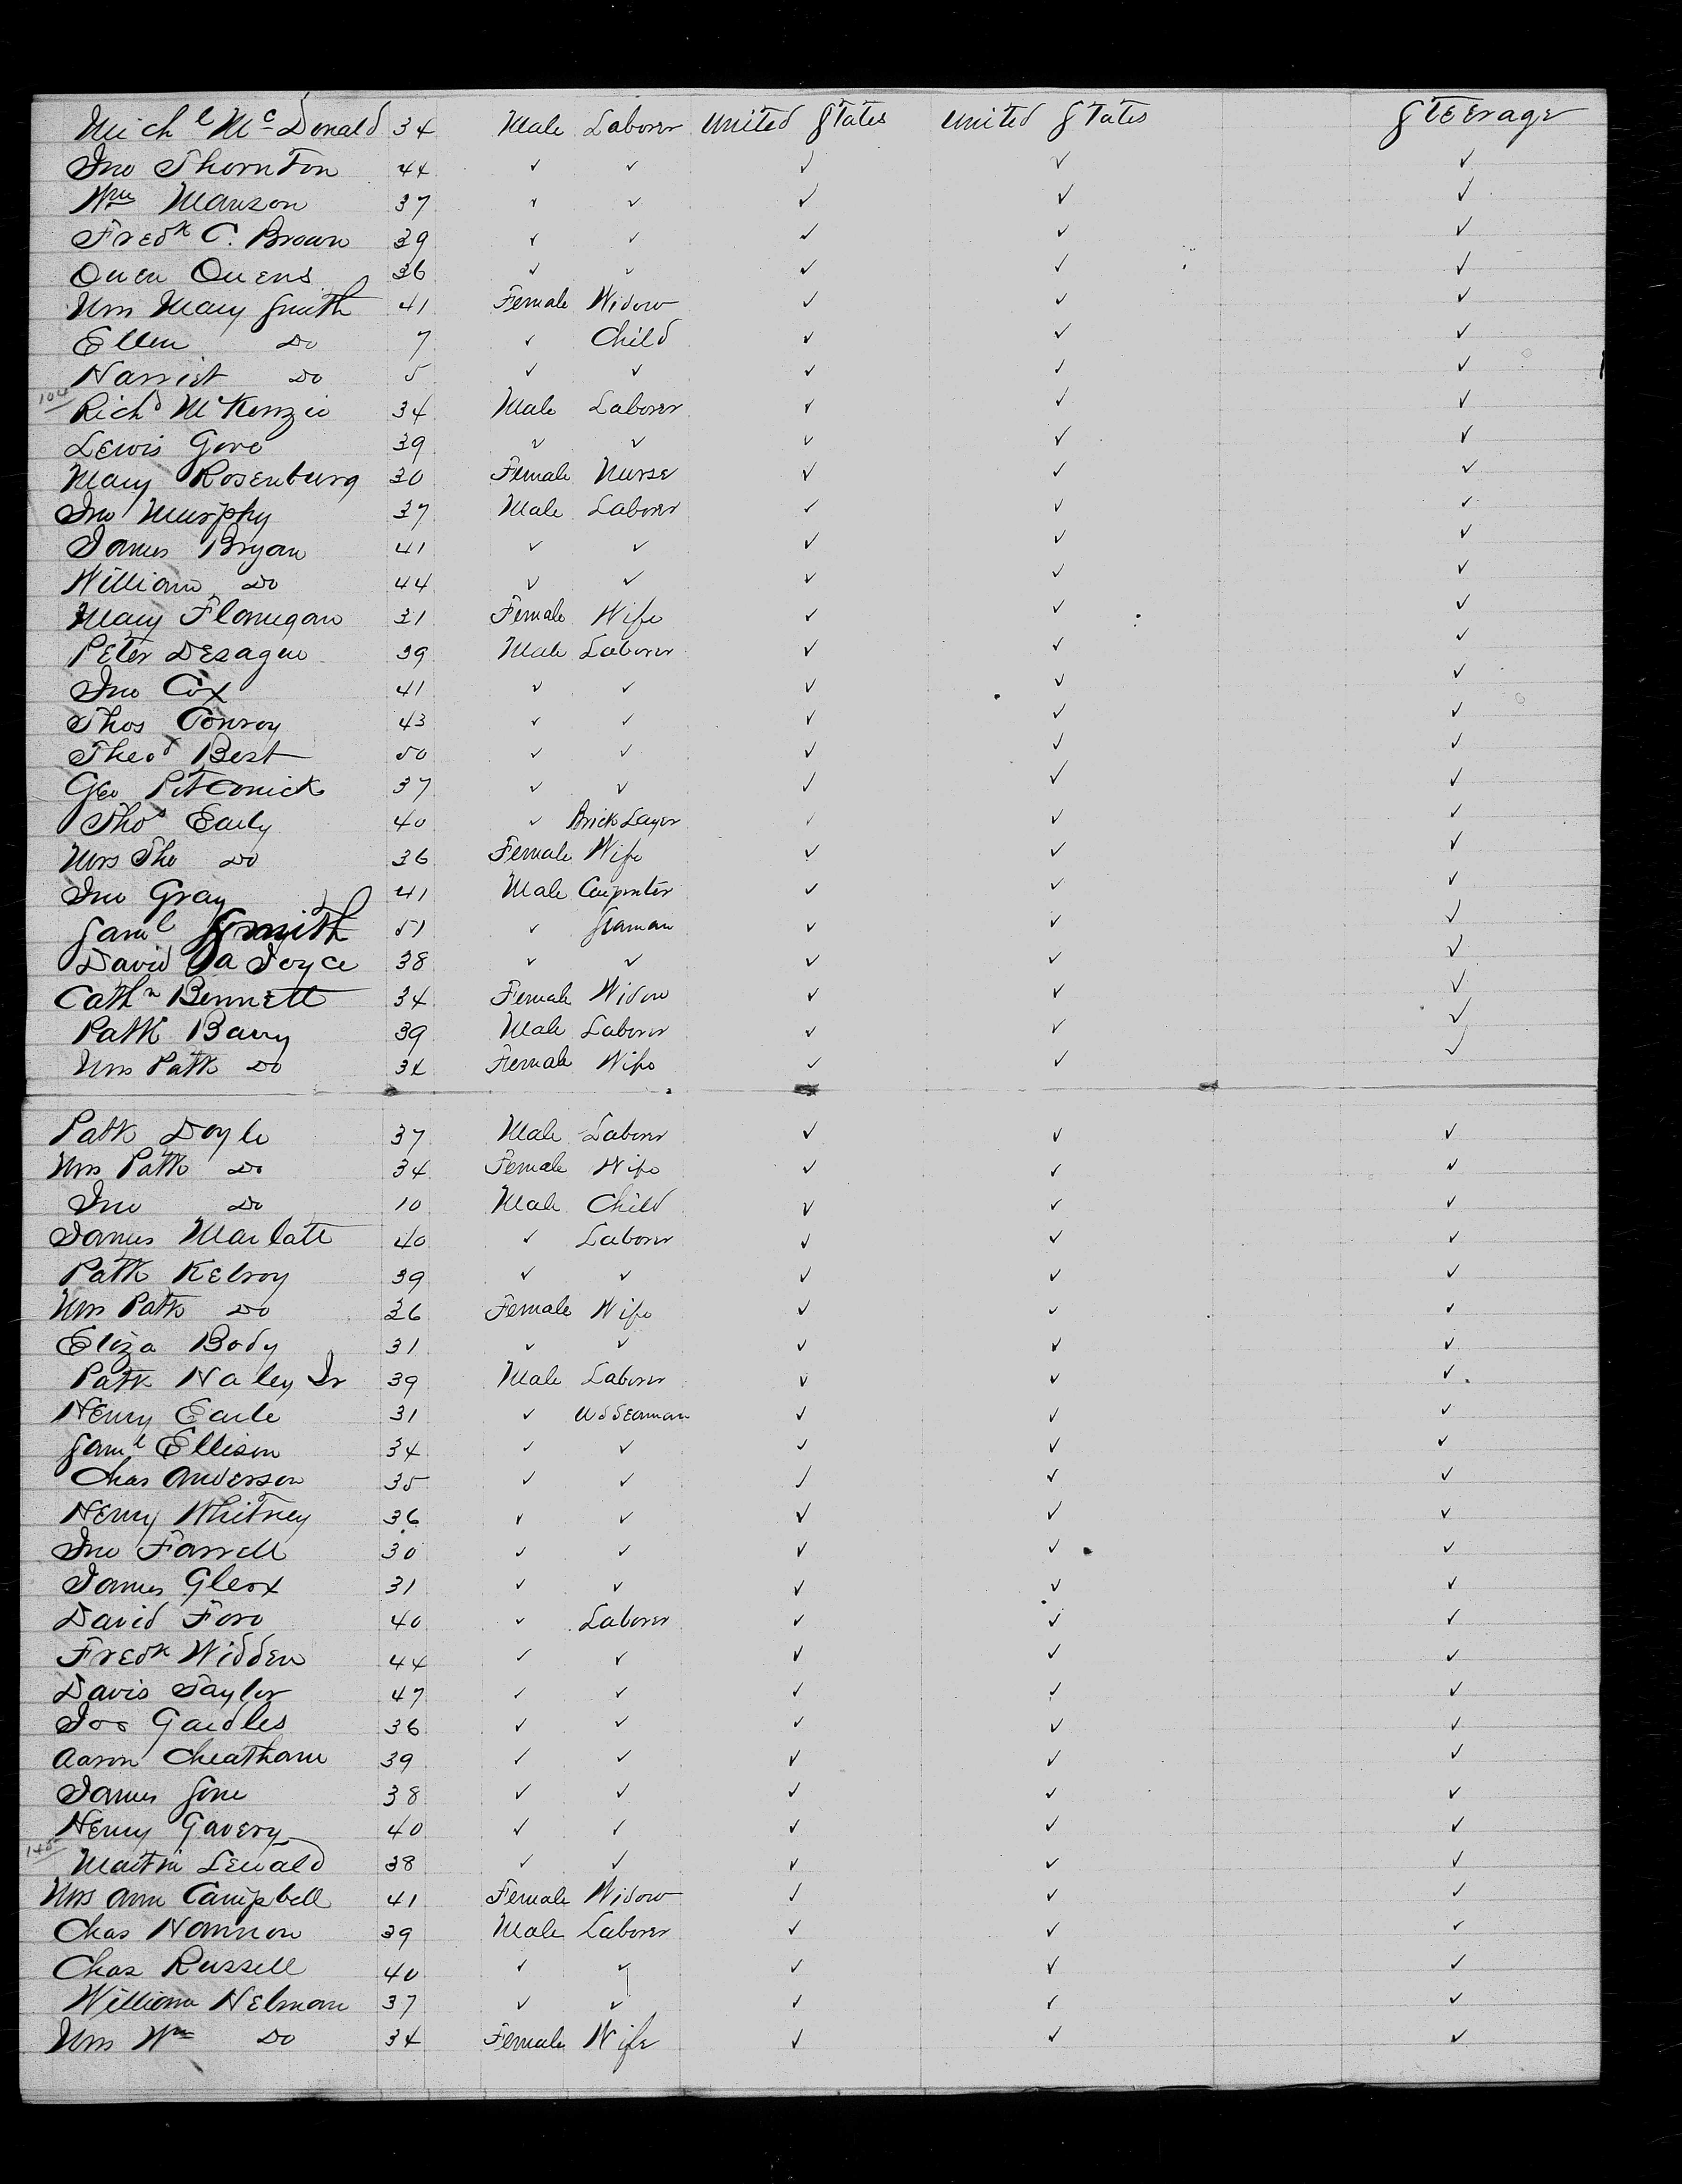 Mich l Mc Donald 34 Male Laborer United States United States Steerage
Jno Thornton 44 ✓ ✓ ✓ ✓ ✓
Wm Manson 37 ✓ ✓ ✓ ✓ ✓
Fredk C. Brown 39 ✓ ✓ ✓ ✓ ✓
Owen Owens 36 ✓ ✓ ✓ ✓ ✓
Mrs Mary Smith 41 Female Widow ✓ ✓ ✓
Ellen Do 7 ✓ Child ✓ ✓ ✓
Harriet Do 5 ✓ ✓ ✓ ✓ ✓
104 Richd McKenzie 34 Male Laborer ✓ ✓ ✓
Lewis Gove 39 ✓ ✓ ✓ ✓ ✓
Mary Rosenburg 30 Female Nurse ✓ ✓ ✓
Jno Murphy 37 Male Laborer ✓ ✓ ✓
James Bryan 41 ✓ ✓ ✓ ✓ ✓
William Do 44 ✓ ✓ ✓ ✓ ✓
Mary Flanugan 31 Female Wife ✓ ✓ ✓
Peter Dezague 39 Male Laborer ✓ ✓ ✓
Jno Cox 41 ✓ ✓ ✓ ✓ ✓
Thos Conroy 43 ✓ ✓ ✓ ✓ ✓
Theod Best 50 ✓ ✓ ✓ ✓ ✓
Geo 37 ✓ ✓ ✓ ✓ ✓
Thos Early 40 ✓ Brick Layer ✓ ✓ ✓
Mrs Tho Do 36 Female Wife ✓ ✓ ✓
Jno Gray 41 Male Carpenter ✓ ✓ ✓
Saml Smith 51 ✓ Seaman ✓ ✓ ✓
David La Joyce 38 ✓ ✓ ✓ ✓ ✓
Cathn Bennett 34 Female Widow ✓ ✓ ✓
Patk Barry 39 Male Laborer ✓ ✓ ✓
Mrs Patk Do 34 Female Wife ✓ ✓ ✓
Patk Doyle 37 Male Laborer ✓ ✓ ✓
Mrs Patk Do 34 Female Wife ✓ ✓ ✓
Jno Do 10 Male Child ✓ ✓ ✓
James Marlatt 40 ✓ Laborer ✓ ✓ ✓
Patk Kelroy 39 ✓ ✓ ✓ ✓ ✓
Mrs Patk Do 36 Female Wife ✓ ✓ ✓
Eliza Body 31 ✓ ✓ ✓ ✓ ✓
Patk Haley Jr 39 Male Laborer ✓ ✓ ✓
Henry Earle 31 ✓ ✓ ✓ ✓
Saml Ellison 34 ✓ ✓ ✓ ✓ ✓
Chas Anderson 35 ✓ ✓ ✓ ✓ ✓
Henry Whitney 36 ✓ ✓ ✓ ✓ ✓
Jno Farrell 30 ✓ ✓ ✓ ✓ ✓
James Glenx 31 ✓ ✓ ✓ ✓ ✓
David Foro 40 ✓ Laborer ✓ ✓ ✓
Fredk Widden 44 ✓ ✓ ✓ ✓ ✓
Davis Taylor 47 ✓ ✓ ✓ ✓ ✓
Jos Gaidles 36 ✓ ✓ ✓ ✓ ✓
Aaron Cheatham 39 ✓ ✓ ✓ ✓ ✓
James Sone 38 ✓ ✓ ✓ ✓ ✓
Henry Gavery 40 ✓ ✓ ✓ ✓ ✓
145 Martin Lewald 38 ✓ ✓ ✓ ✓ ✓
Mrs Ann Campbell 41 Female Widow ✓ ✓ ✓
Chas Hannon 39 Male Laborer ✓ ✓ ✓
Chas Russell 40 ✓ ✓ ✓ ✓ ✓
William Helman 37 ✓ ✓ ✓ ✓ ✓
Mrs Wm Do 34 Female Wife ✓ ✓ ✓